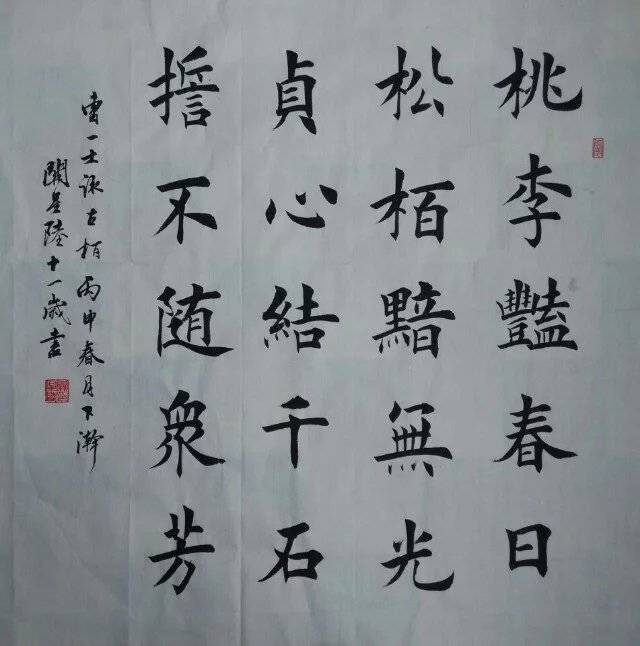 桃李豔春日
松栢黯無光
貞心結千石
誓不随衆芳
曹一士詠古栢丙申春月下澣
關星陸十一歲書